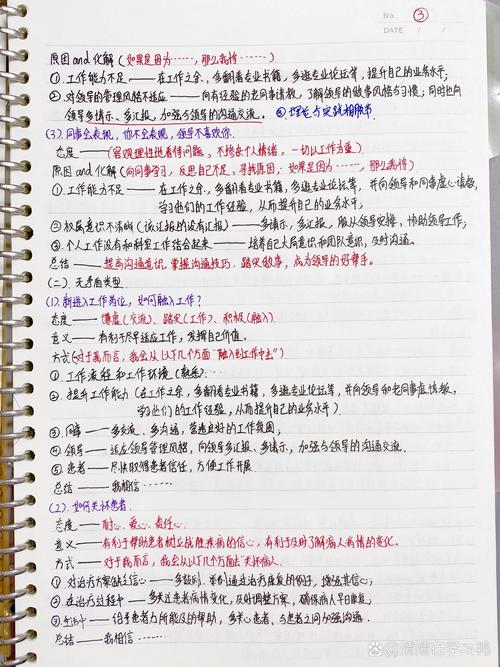 No. ③
DATE / /
原因and化解(如果是因为……,那么我将……)
①.工作能力不足——在工作之余,多翻看专业书籍,多逛专业论坛等,提升自己的业务水平;
②.对领导的管理风格不适应——向有经验的老同事请教,了解领导的做事风格与习惯;同时也向
领导多请示、多汇报,加强与领导的沟通交流。 ③理论与实践相脱节
(3).同事会表现,你不会表现,领导不喜欢你.
态度——(客观理性地看待问题,不掺杂个人情绪,一切以工作为重)
原因and化解(向同事学习,反思自己不足,寻找原因,如果是因为…,那么我将)
①.工作能力不足——在工作之余,多翻看专业书籍,多逛专业论坛等,并向领导和同事虚心请教,
学习他们的工作经验,从而提升自己的业务水平;
②.权属意识不清晰(该汇报的没有汇报)——多请示,多汇报,服从领导安排,协助领导工作;
③.个人工作没有和科室工作结合起来——培养自己大局意识和团队意识,及时沟通。
总结——提高沟通意识,掌握沟通技巧,踏实做事,成为领导的好帮手。
(二).无矛盾类型.
(1).新进入工作岗位,如何融入工作?
态度——谦虚(交流)、踏实(工作)、积极(融入)
意义——有利于尽早适应工作,发挥自己价值.
方式(对于我而言,我会从以下几个方面"融入到工作中去")
①.工作流程和工作环境(熟悉)…
②.提升工作能力(在工作之余,多翻看专业书籍,多逛专业论坛等,并向领导和老同事虚心请教,
学习他们的工作经验,从而提升自己的业务水平)
③.同事——多交流、多沟通,营造良好的工作氛围,
④.领导——适应领导管理风格,向领导多汇报、多请示,加强与领导的沟通交流.
⑤.患者——尽快取得患者信任,方便工作开展.
总结——我相信……
(2).如何关怀患者.
态度——耐心、爱心、责任心.
意义——有利于帮助患者树立战胜疾病的信心,有利于及时了解病人病情的变化。
方式——对于我而言,我会从以下几个方面去"关怀病人"
①.对治疗方案缺乏信心——多鼓励、举例通过治疗康复的例子,增强其信心;
②.在治疗过程中——多关注患者病情变化,及时调整方案,确保病人早日康复;
③.生活中——给予患者力所能及的帮助,多关心患者,与患者之间加强沟通.
总结——我相信……